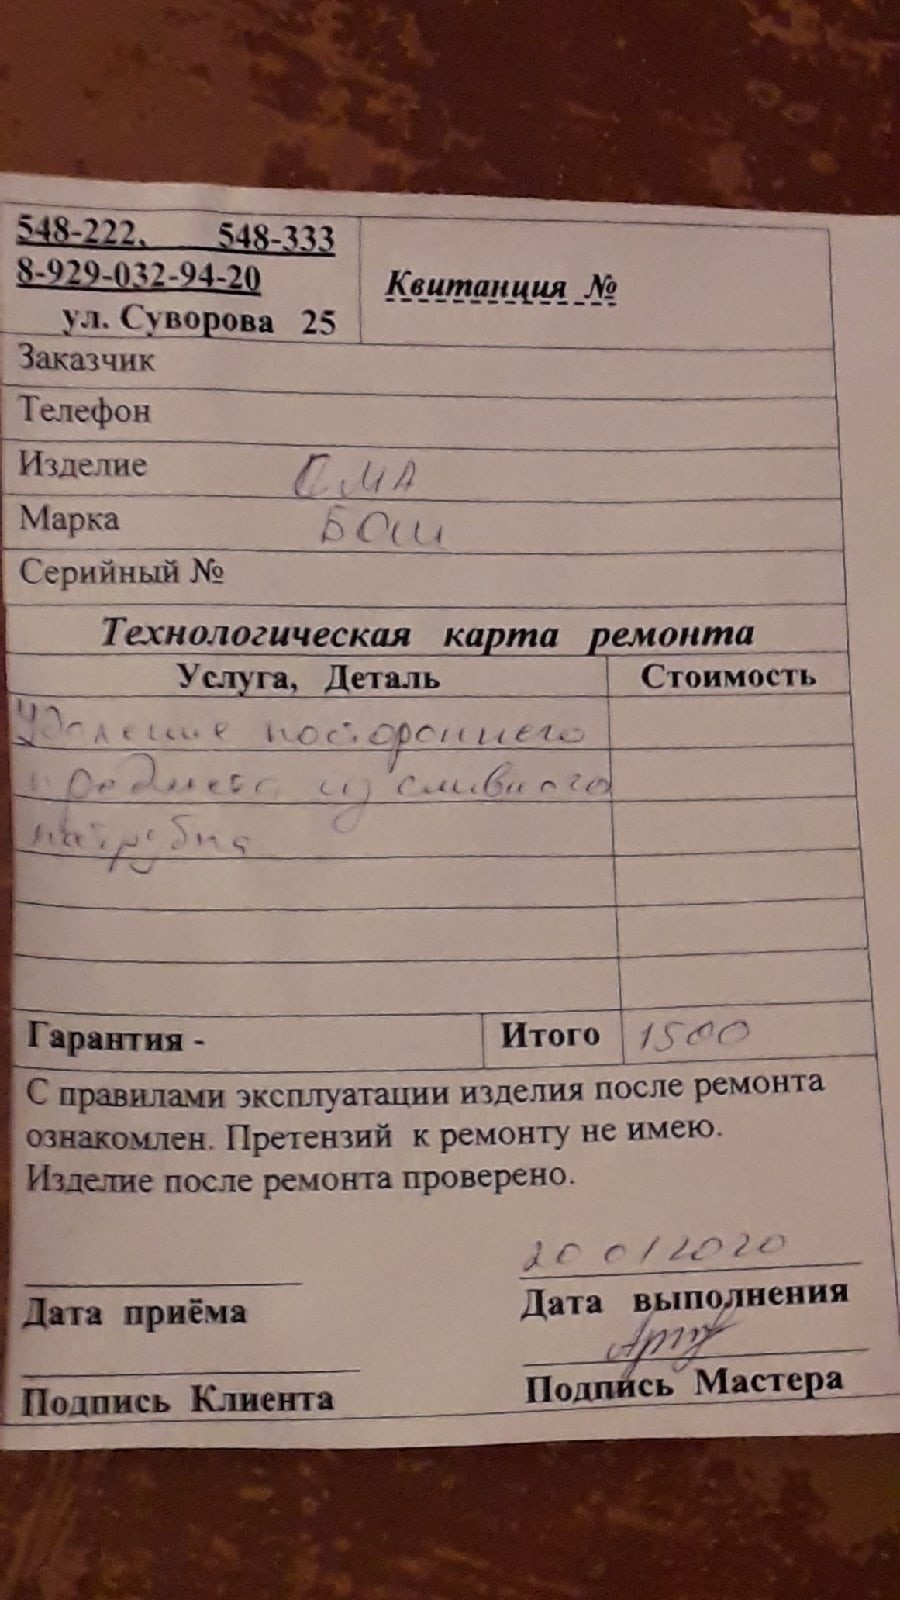 548-222, 548-333
8-929-032-94-20
ул. Суворова 25
Квитанция №
Заказчик
Телефон
Изделие СМА
Марка БОШ
Серийный №
Технологическая карта ремонта
Услуга, Деталь Стоимость
Удаление постороннего
предмета из сливного
патрубка
Гарантия - Итого 1500
С правилами эксплуатации изделия после ремонта
ознакомлен. Претензий к ремонту не имею.
Изделие после ремонта проверено.
20 01 2020
Дата приёма Дата выполнения
Подпись Клиента Подпись Мастера